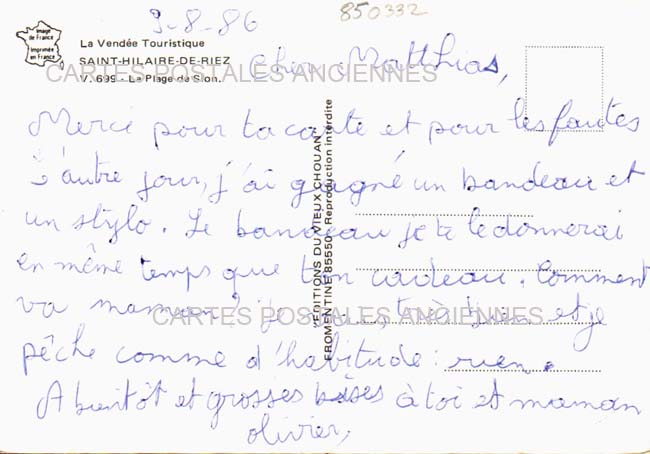 9-8-86
850332
Image de France
Imprimée en France
La Vendée Touristique
SAINT-HILAIRE-DE-RIEZ
V. 699 - La Plage de Sion.
Cher Matthias,
CARTES POSTALES ANCIENNES
Merci pour ta carte et pour les fautes
l'autre jour, j'ai gagné un bandeau et
un stylo. Le bandeau je te le donnerai
en même temps que ton cadeau. Comment
va maman? très bien et je
CARTES POSTALES ANCIENNES
pêche comme d'habitude: rien.
A bientôt et grosses bises à toi et maman
olivier,
"EDITIONS DU VIEUX CHOUAN"
FROMENTINE 85550 - Reproduction interdite